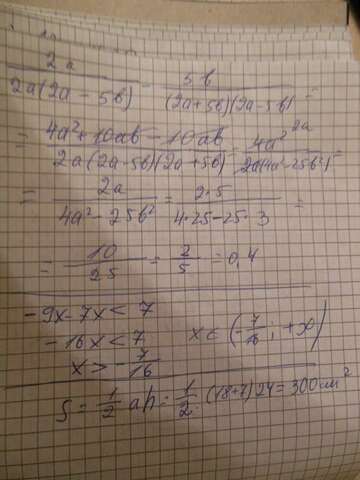 2a / 2a(2a - 5b) - 5b / (2a+5b)(2a-5b) =
= 4a² + 10ab - 10ab / 2a(2a-5b)(2a+5b) = 4a² 2a / 2a(4a²-25b²) =
= 2a / 4a² - 25b² = 2·5 / 4·25-25·3 =
= 10 / 25 = 2 / 5 = 0,4
-9x-7x < 7
-16x < 7 x ∈ (-7/16; +∞)
x > -7/16
S = 1/2 ah = 1/2 · (18+7)24 = 300 см²